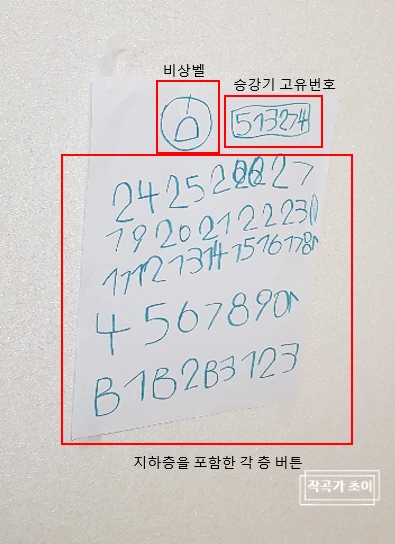 비상벨
승강기 고유번호
513274
24 25 26 27
19 20 21 22 23
11 12 13 14 15 16 17 18
4 5 6 7 8 9 01
B1 B2 B3 1 2 3
지하층을 포함한 각 층 버튼
작곡가 초이